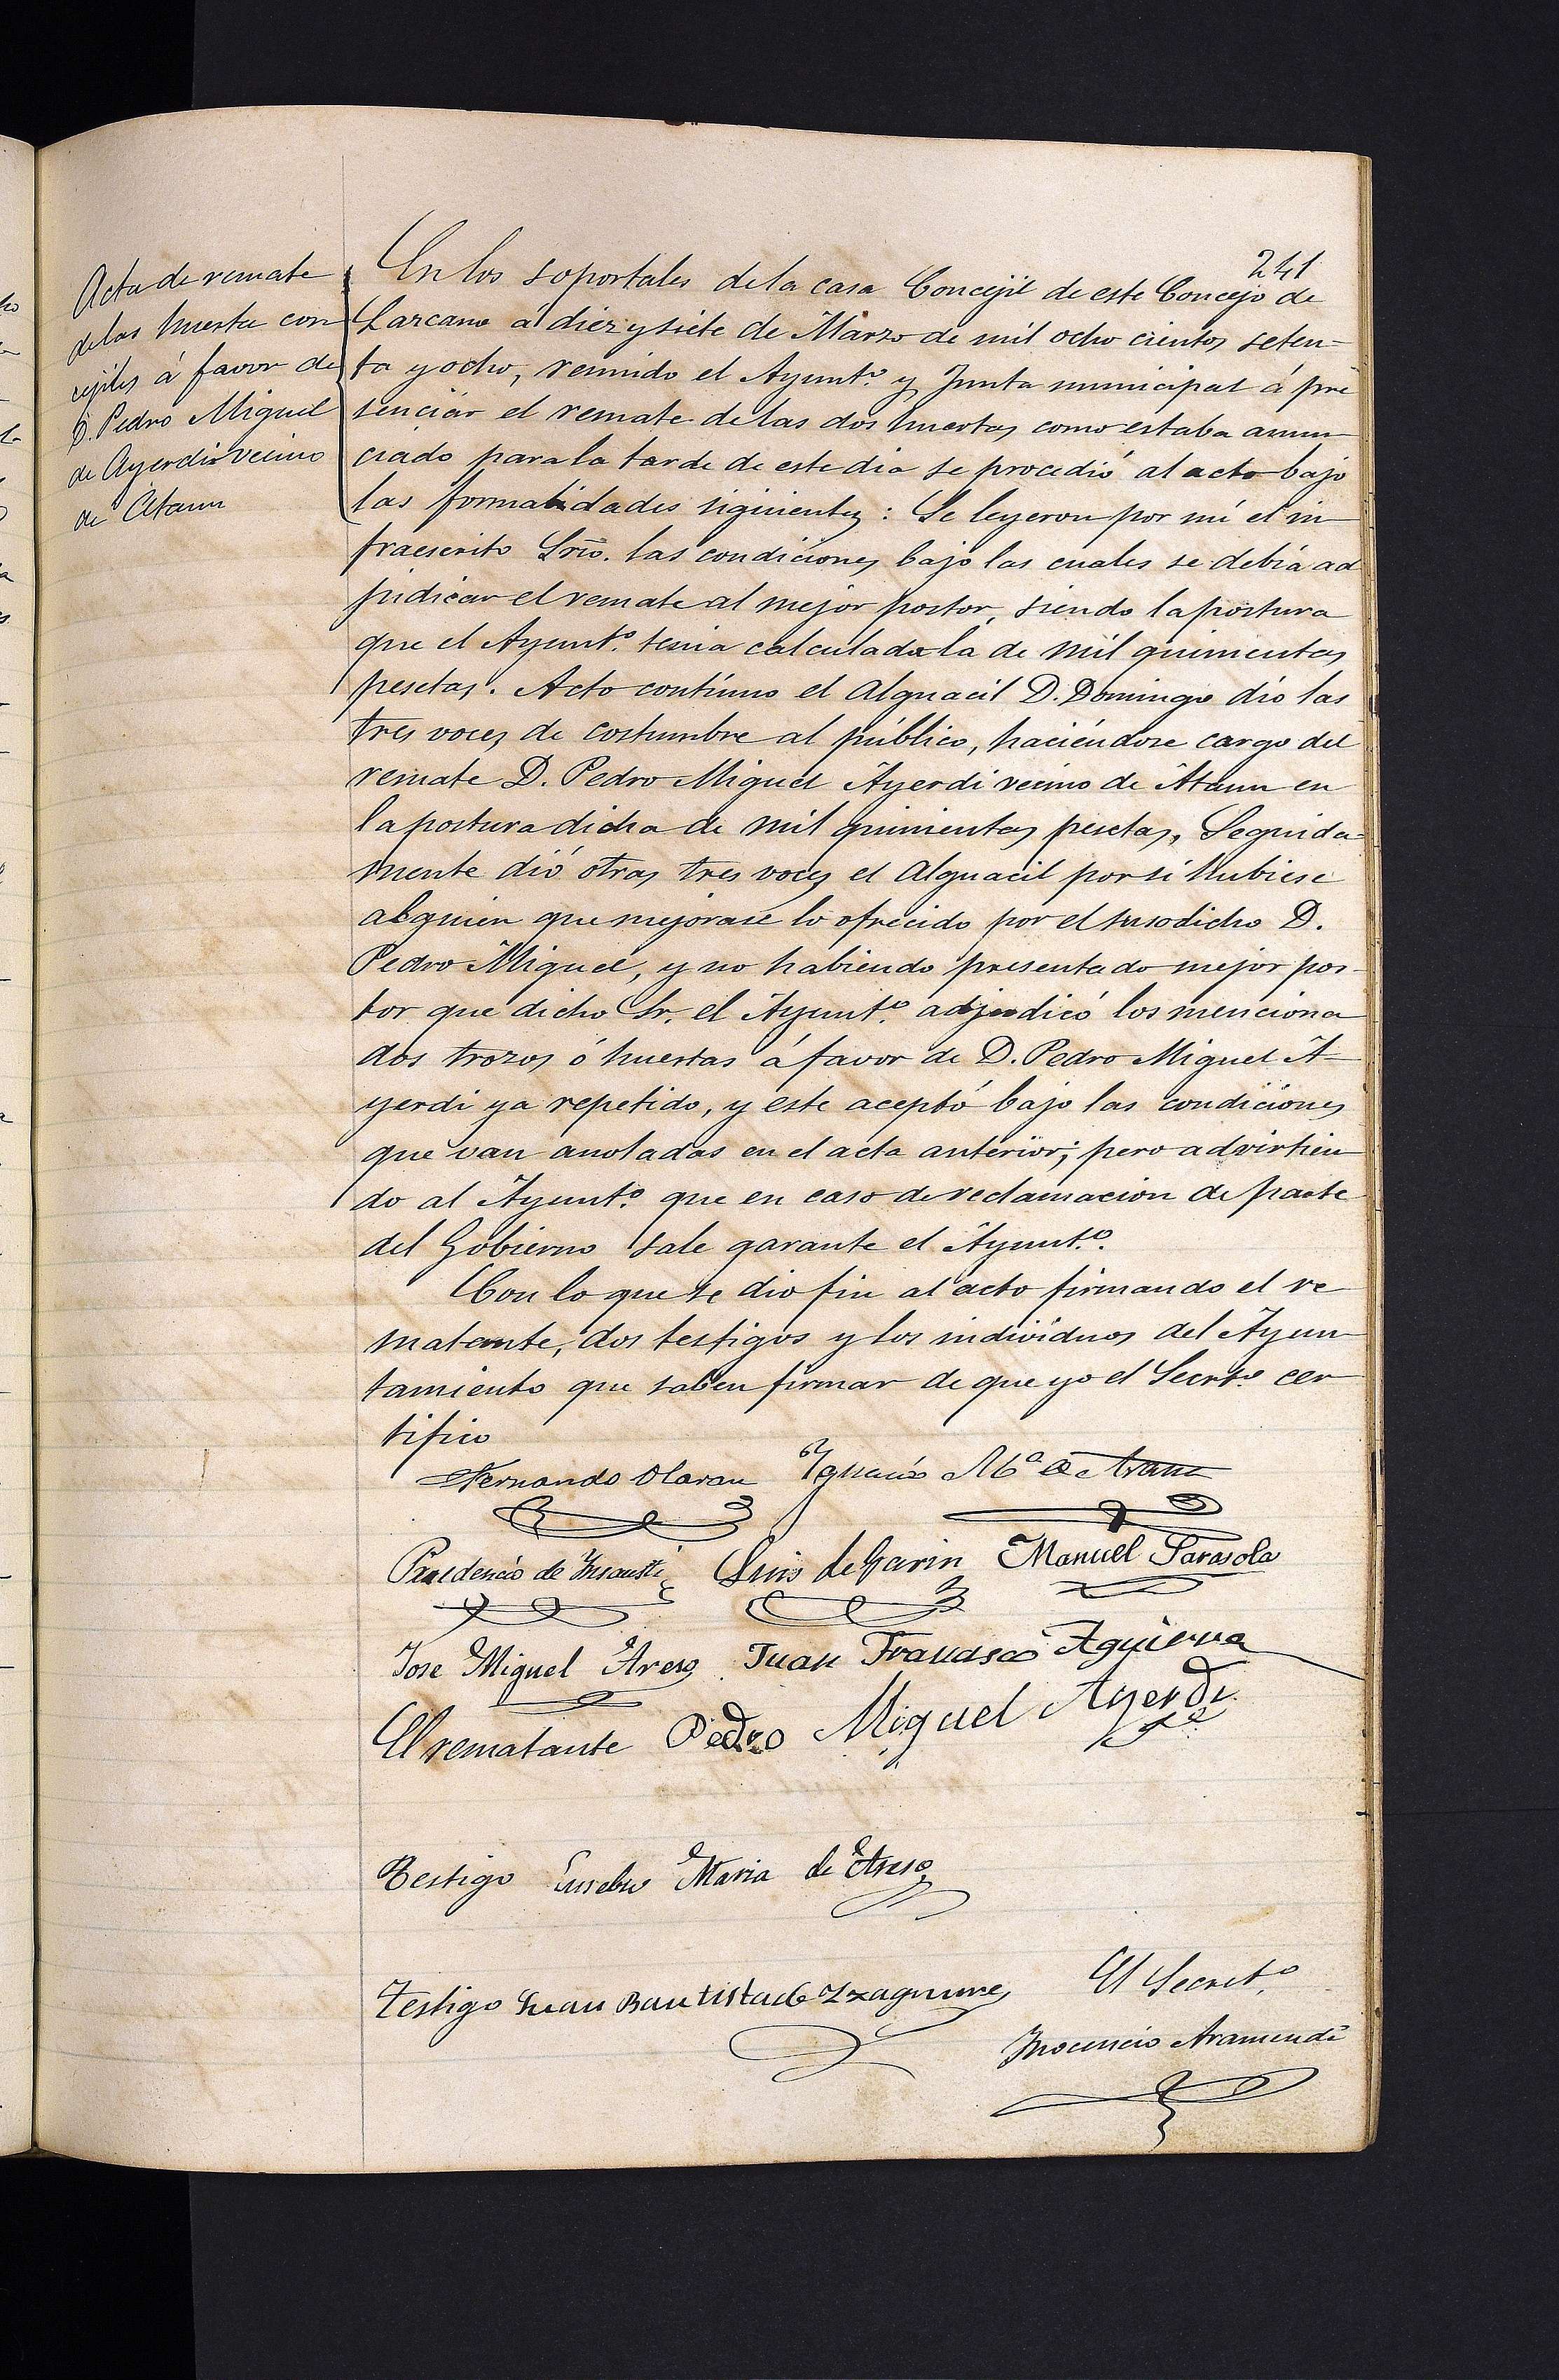 241
Acta de remate
de las huerta con
cejiles á favor de
D. Pedro Miguel
de Ayerdi vecino
de Ataun
En los soportales de la casa Concejil de este Concejo de
Lazcano á diez y siete de Marzo de mil ocho cientos seten=
ta y ocho, reunido el Ayunt.º y Junta municipal á pre
senciar el remate de las dos huertas como estaba anun
ciado para la tarde de este dia se procedió al acto bajo
las formalidades siguientes: Se leyeron por mí el in
fraescrito Srio. las condiciones bajo las cuales se debía ad
judicar el remate al mejor postor, siendo la postura
que el Ayunt.º tenia calculada la de mil quinientas
pesetas. Acto contínuo el Alguacil D. Domingo dio las
tres voces de costumbre al público, haciéndose cargo del
remate D. Pedro Miguel Ayerdi vecino de Ataun en
la postura dicha de mil quinientas pesetas, Seguida=
mente dió otras tres voces el Alguacil por si hubiese
alguien que mejorase lo ofrecido por el susodicho D.
Pedro Miguel, y no habiendo presentado mejor pos-
tor que dicho Sr. el Ayunt.º adjudicó los menciona
dos trozos ó huertas á favor de D. Pedro Miguel A-
yerdi ya repetido, y este aceptó bajo las condiciones
que van anotadas en el acta anterior; pero advirtien
do al Ayunt.º que en caso de reclamacion de parte
del Gobierno sale garante el Ayunt.º.
Con lo que se dio fin al acto firmando el re
matante, dos testigos y los individuos del Ayun
tamiento que saben firmar de que yo el Secrt.º cer
tifico
Fernando Olaran Ygnacio M.ª de Arana
Prudencio de Insausti Luis de Garin Manuel Sarasola
Jose Miguel Areso Juan Francisco Aguirre
El rematante Pedro Miguel Ayerdi
Testigo Eusebio Maria de Areso
Testigo Juan Bautista de Yzaguirre
El Secret.º
Inocencio Aramendi